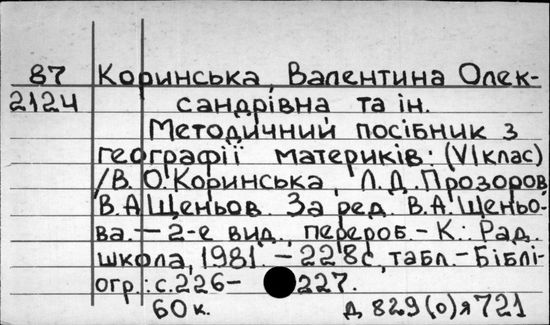 87 Коринська, Валентина Олек-
2124 сандрівна та ін.
Методичний посібник з
географії материків: (VI клас)
/В. О. Коринська, Л. Д. Прозоров,
В. А. Щеньов. За ред. В. А. Щеньо-
ва. — 2-е вид., перероб. — К.: Рад.
школа, 1981. — 228с., табл. — Біблі-
огр.: с. 226— 227.
60 к. Д 829(0)я721